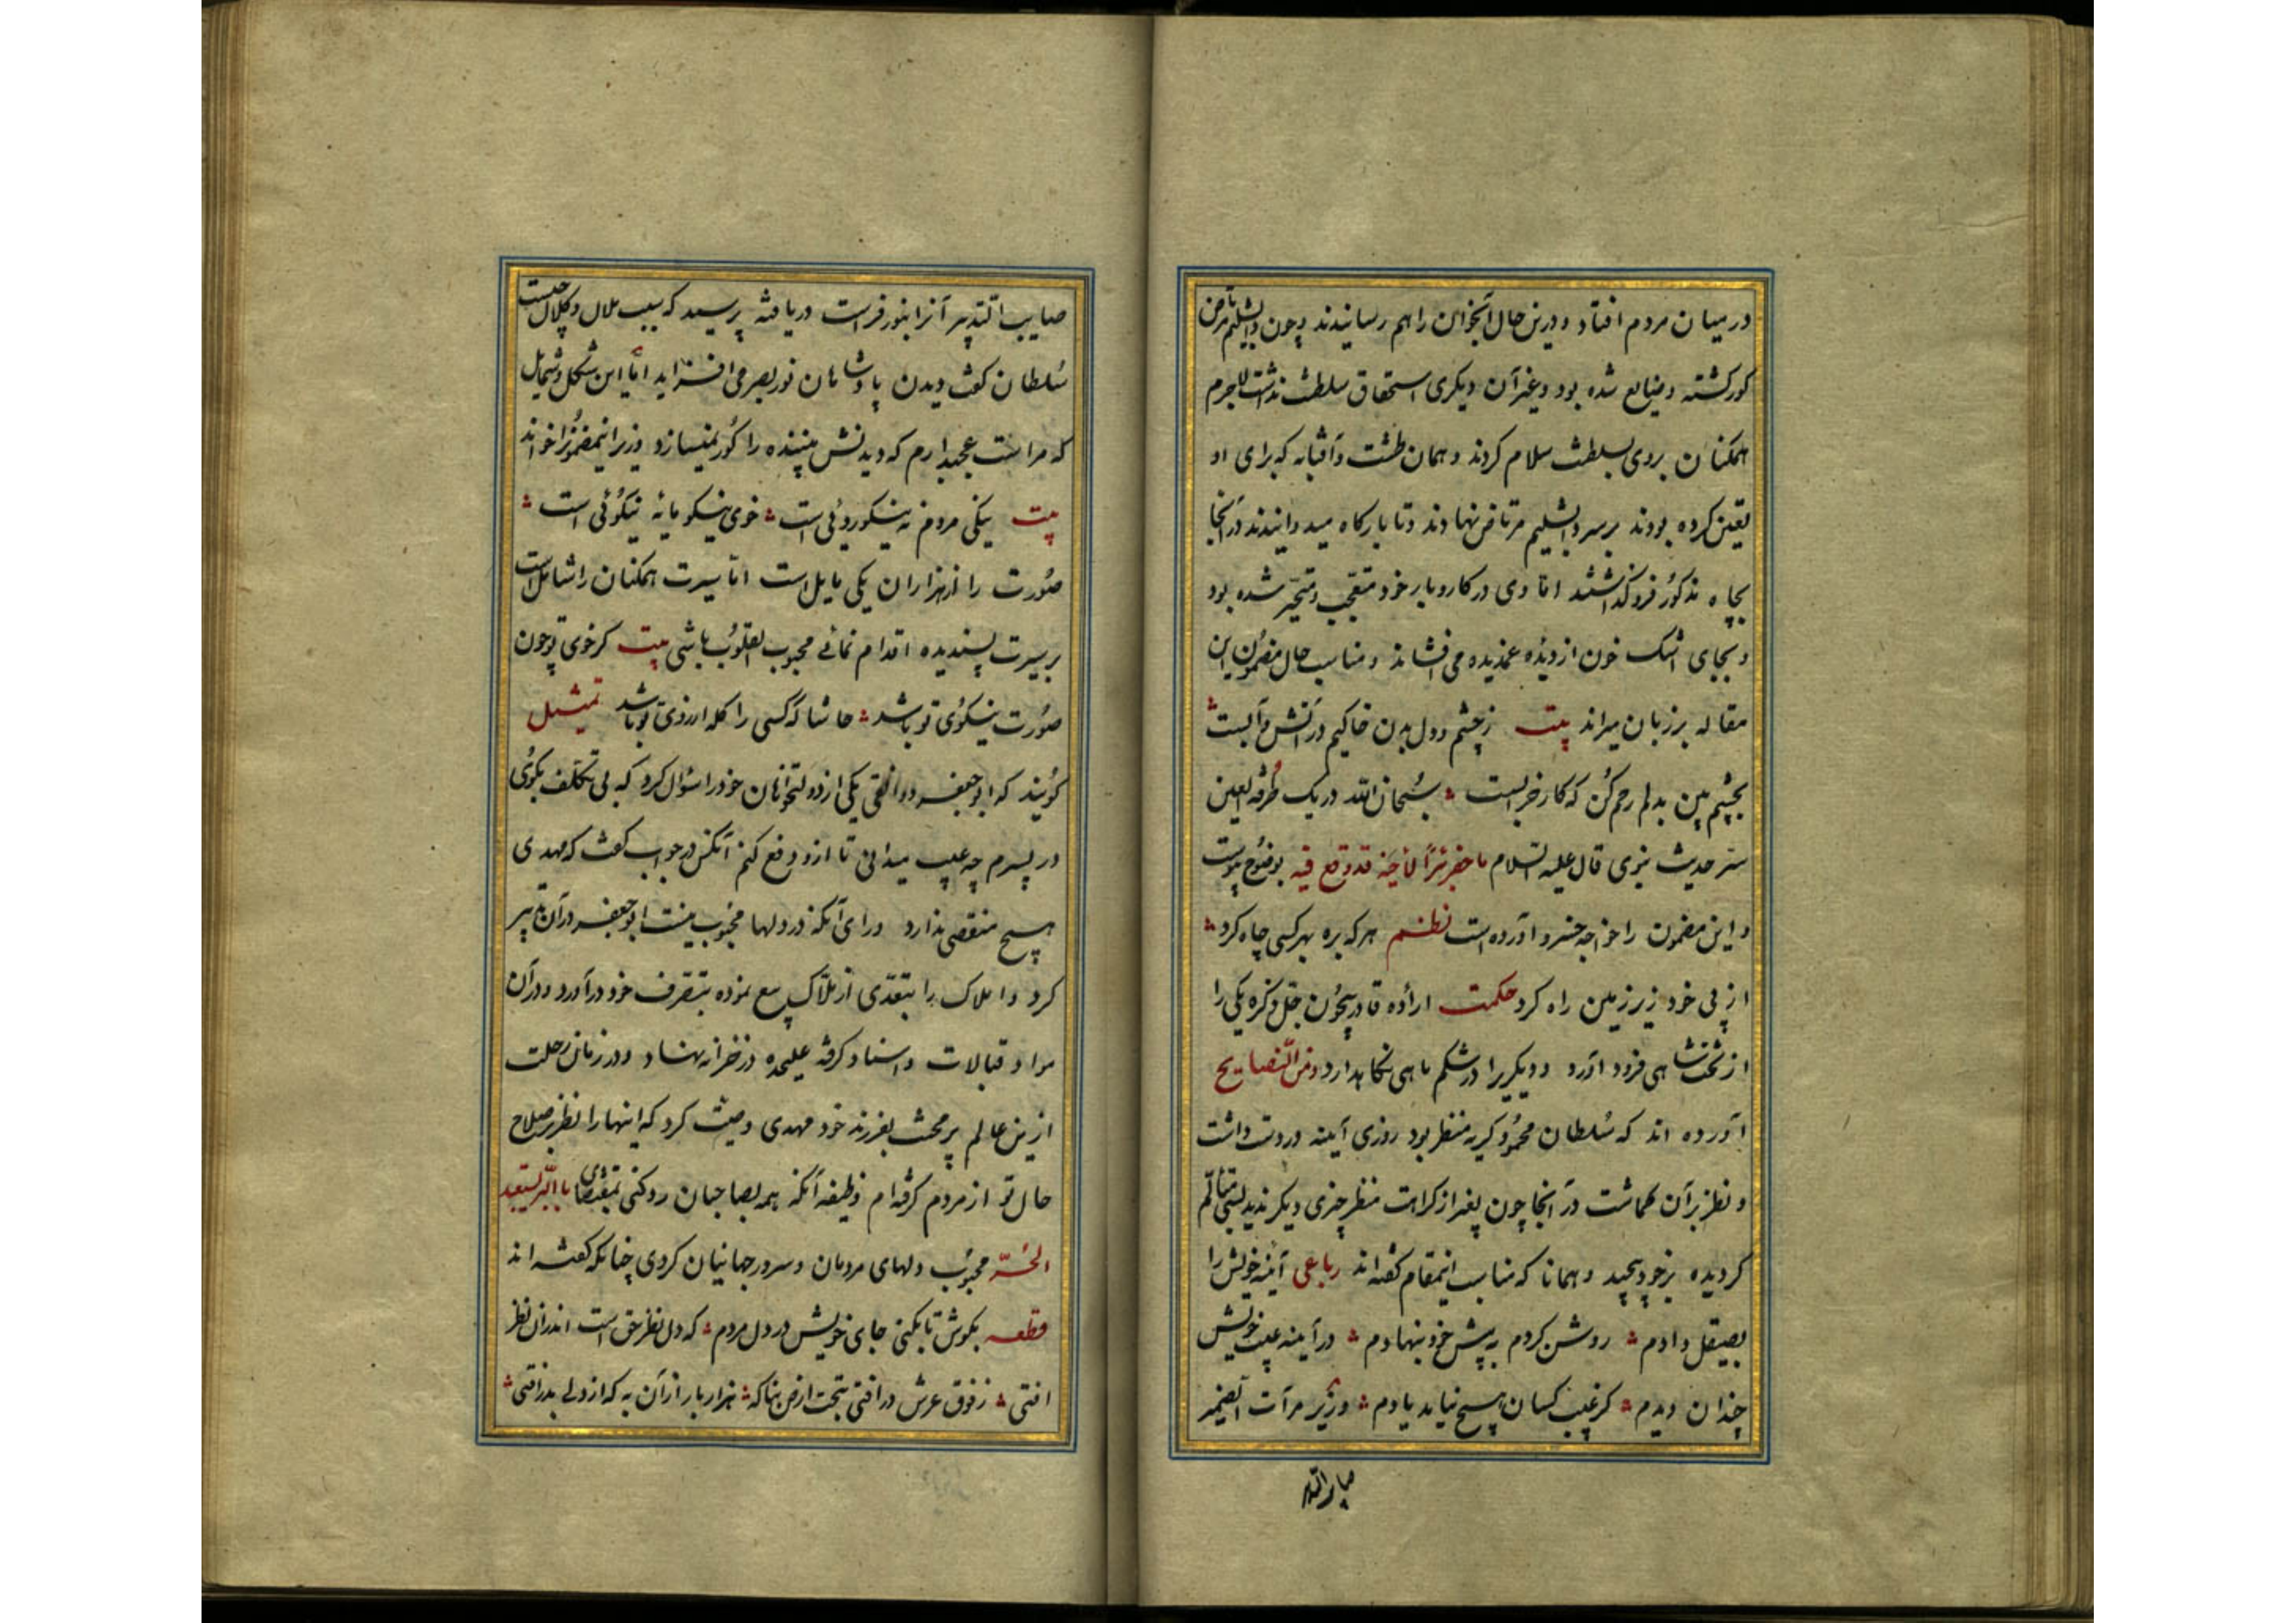 در میان مردم افتاد و درین حال آنجوان را هم رسانیدند و چون دابشلیم مرتاض
کور کشته و ضایع شده بود و غیر آن دیکری استحقاق سلطنت نداشت لاجرم
همکنان بروی بسلطنت سلام کردند و همان طشت و آفتابه که برای او
تعین کرده بودند بر سر دابشلیم مرتاض نهادند و تا بارکاه میدوانیدند در آنجا
بچاه مذکور فرو کذاشتند امّا وی در کاروبار خود متعجّب و متحیّر شده بود
و بجای اشک خون از دیدۀ غمدیده می افشاند و مناسب حال مضمون این
مقاله بر زبان میراند بیت ز چشم و دل بدن خاکیم در آتش و آبست
بچشم بین بدلم رحم کن که کار خرابست سبحان الله در یک طرفة العین
سرّ حدیث نبوی قال علیه السلام ما حفر بئراً لأخیه قد وقع فیه بوضوح پیوست
و این مضمون را خواجه خسرو آورده است نظم هر که بره بهر کسی چاه کرد
از پی خود زیر زمین راه کرد حکمت ارادۀ قادر بیچون جلّ ذکره یکی را
از تخت شاهی فرود آورد و دیکریرا در شکم ماهی نکاهدارد و من النصایح
آورده اند که سلطان محمود کریه منظر بود روزی آینه در دست داشت
و نظر بر آن کماشت در آنجا چون بغیر از کراهت منظر چیزی دیکر ندید بسی متألّم
کردیده بر خود پیچید و همانا که مناسب اینمقام کفته اند رباعی آینه خویش را
بصیقل دادم روشن کردم به پیش خود بنهادم در آینه عیب خویش
چندان دیدم کز عیب کسان هیچ نیاید یادم وزیر مرآت الضمیر
صایب التدبیر
صایب التدبیر آنرا بنور فراست دریافته پرسید که سبب ملال و کلال چیست
سلطان کفت دیدن پادشاهان نور بصر می افزاید امّا این شکل و شمایل
که مراست عجبدارم که دیدنش بیننده را کور نمیسازد وزیر اینمضمونرا خواند
بیت نیکی مردم نه نیکورویی است خوی نیکو مایۀ نیکوئی است
صورت را از هزاران یکی مایل است امّا سیرت همکنان را شامل است
بر سیرت پسندیده اقدام نمائی محبوب القلوب باشی بیت کر خوی تو چون
صورت نیکوی تو باشد حاشا که کسی را کله از روی تو باشد تمثیل
کویند که ابو جعفر دوانقی یکی از دولتخواهان خود را سؤال کرد که بی تکلّف بکوی
در پسرم چه عیب میدانی تا ازو دفع کنم آنکس در جواب کفت که مهدی
هیچ منقصی ندارد ورای آنکه در دلها محبوب نیست ابو جعفر در آن تدبیر
کرد و املاک را بتعدّی از ملّاک بیع نموده بتصرف خود در آورد و در آن
مواد قبالات و اسناد کرفته علیحده در خزانه نهاد و در زمان رحلت
ازین عالم پر محنت بفرزند خود مهدی وصیّت کرد که اینها را نظر بر صلاح
حال تو از مردم کرفته ام وظیفه آنکه همه بصاحبان رد کنی بمقتضای بالبر یستعبد
الحرّ محبوب دلهای مردمان و سرور جهانیان کردی چنانکه کفته اند
قطعه بکوش تا بکنی جای خویش در دل مردم که دل نظر حق است اندران نظر
افتی ز فوق عرش در افتی بتحت ارض بناکه هزار بار از آن به که از دلی بدر افتی